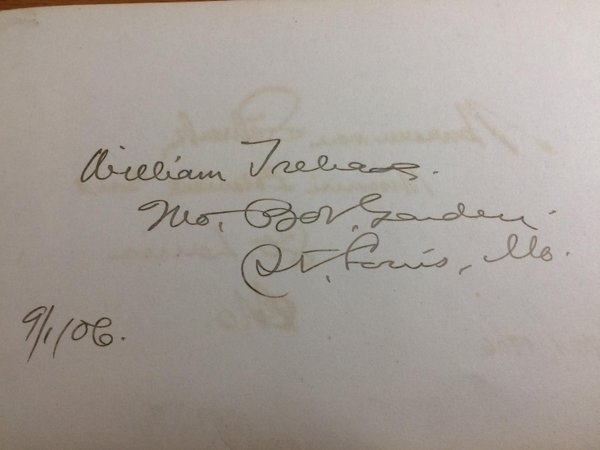 William Trelease.
Mo. Bot. Garden.
St. Louis, Mo.
9/1/06.